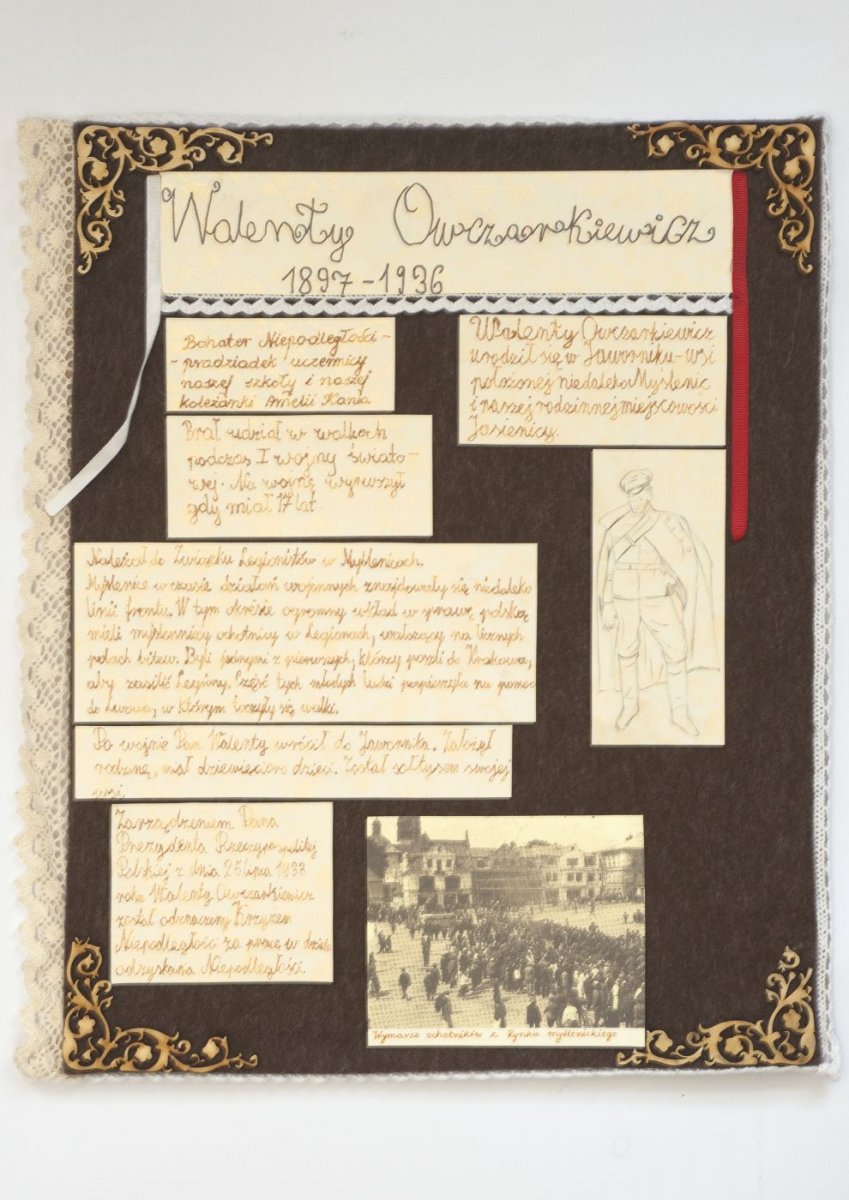 Walenty Owczarkiewicz
1897-1936
Bohater Niepodległości -
- pradziadek uczennicy
naszej szkoły i naszej
koleżanki Amelii Kania
Walenty Owczarkiewicz
urodził się w Jaworniku-wsi
położonej niedaleko Myślenic
i naszej rodzinnej miejscowości
Jasienicy.
Brał udział w walkach
podczas I wojny świato-
wej. Na wojnę wyruszył
gdy miał 17 lat.
Należał do Związku Legionistów w Myślenicach.
Myślenice w czasie działań wojennych znajdowały się niedaleko
linii frontu. W tym okresie ogromny wkład w sprawę polską
mieli myśleniccy ochotnicy w Legionach, walczący na licznych
polach bitew. Byli jednymi z pierwszych, którzy poszli do Krakowa,
aby zasilić Legiony. Część tych młodych ludzi pospieszyła na pomoc
do Lwowa, w którym toczyły się walki.
Po wojnie Pan Walenty wrócił do Jawornika. Założył
rodzinę, miał dziewięcioro dzieci. Został sołtysem swojej
wsi.
Zarządzeniem Pana
Prezydenta Rzeczypospolitej
Polskiej z dnia 25 lipca 1933
roku Walenty Owczarkiewicz
został odznaczony Krzyżem
Niepodległości za pracę w dziele
odzyskania Niepodległości.
Wymarsz ochotników z Rynku myślenickiego